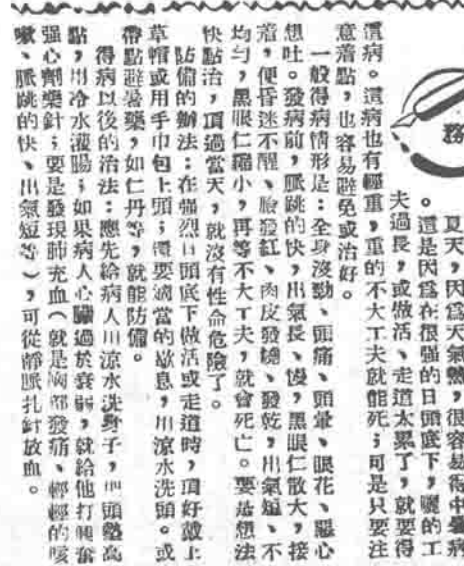 務
夏天,因爲天氣熱,很容易得中暑病
。這是因爲在很强的日頭底下,曬的工
夫過長,或做活、走道太累了,就要得
這病。這病也有輕重,重的不大工夫就能死;可是只要注
意着點,也容易避免或治好。
一般得病情形是:全身沒勁、頭痛、頭暈、眼花、噁心
想吐。發病前,脈跳的快,出氣長、慢,黑眼仁散大,接
着,便昏迷不醒、臉發紅、肉皮發燒、發乾,出氣短、不
均勻,黑眼仁縮小,再等不大工夫,就會死亡。要趕想法
快點治,頂過當天,就沒有性命危險了。
防備的辦法:在强烈日頭底下做活或走道時,頂好戴上
草帽或用手巾包上頭;還要適當的歇息,用涼水洗頭。或
帶點避暑藥,如仁丹等,就能防備。
得病以後的治法:應先給病人用涼水洗身子,把頭墊高
點,用冷水灌腸;如果病人心臟過於衰弱,就給他打興奮
强心劑藥針;要是發現肺充血(就是胸部發痛、輕輕的咳
嗽、脈跳的快、出氣短等),可從靜脈扎針放血。